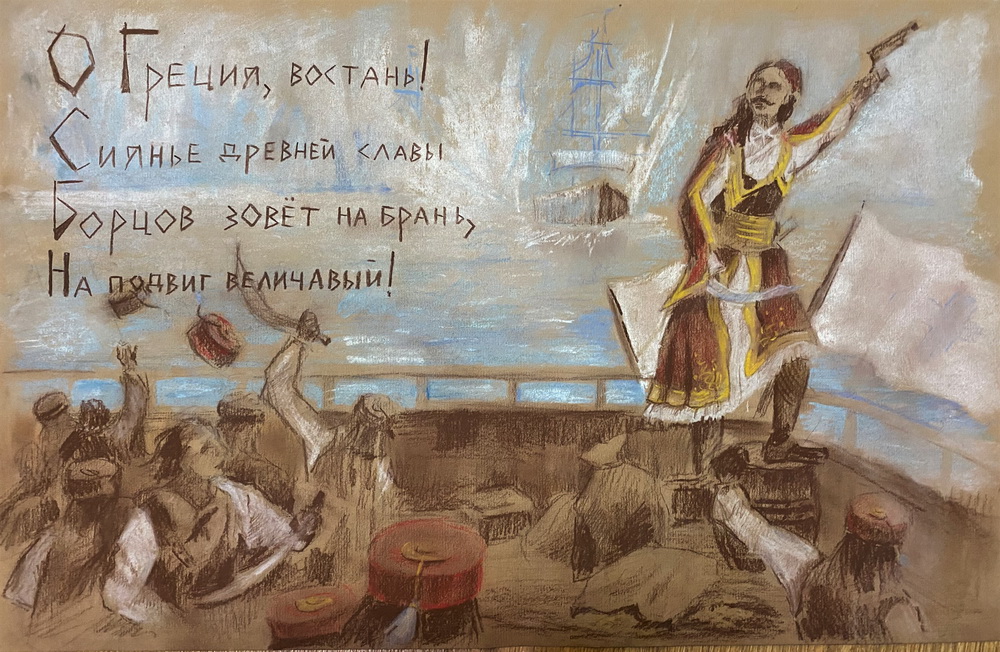 О Греция, востань!
Сиянье древней славы
Борцов зовёт на брань,
На подвиг величавый!